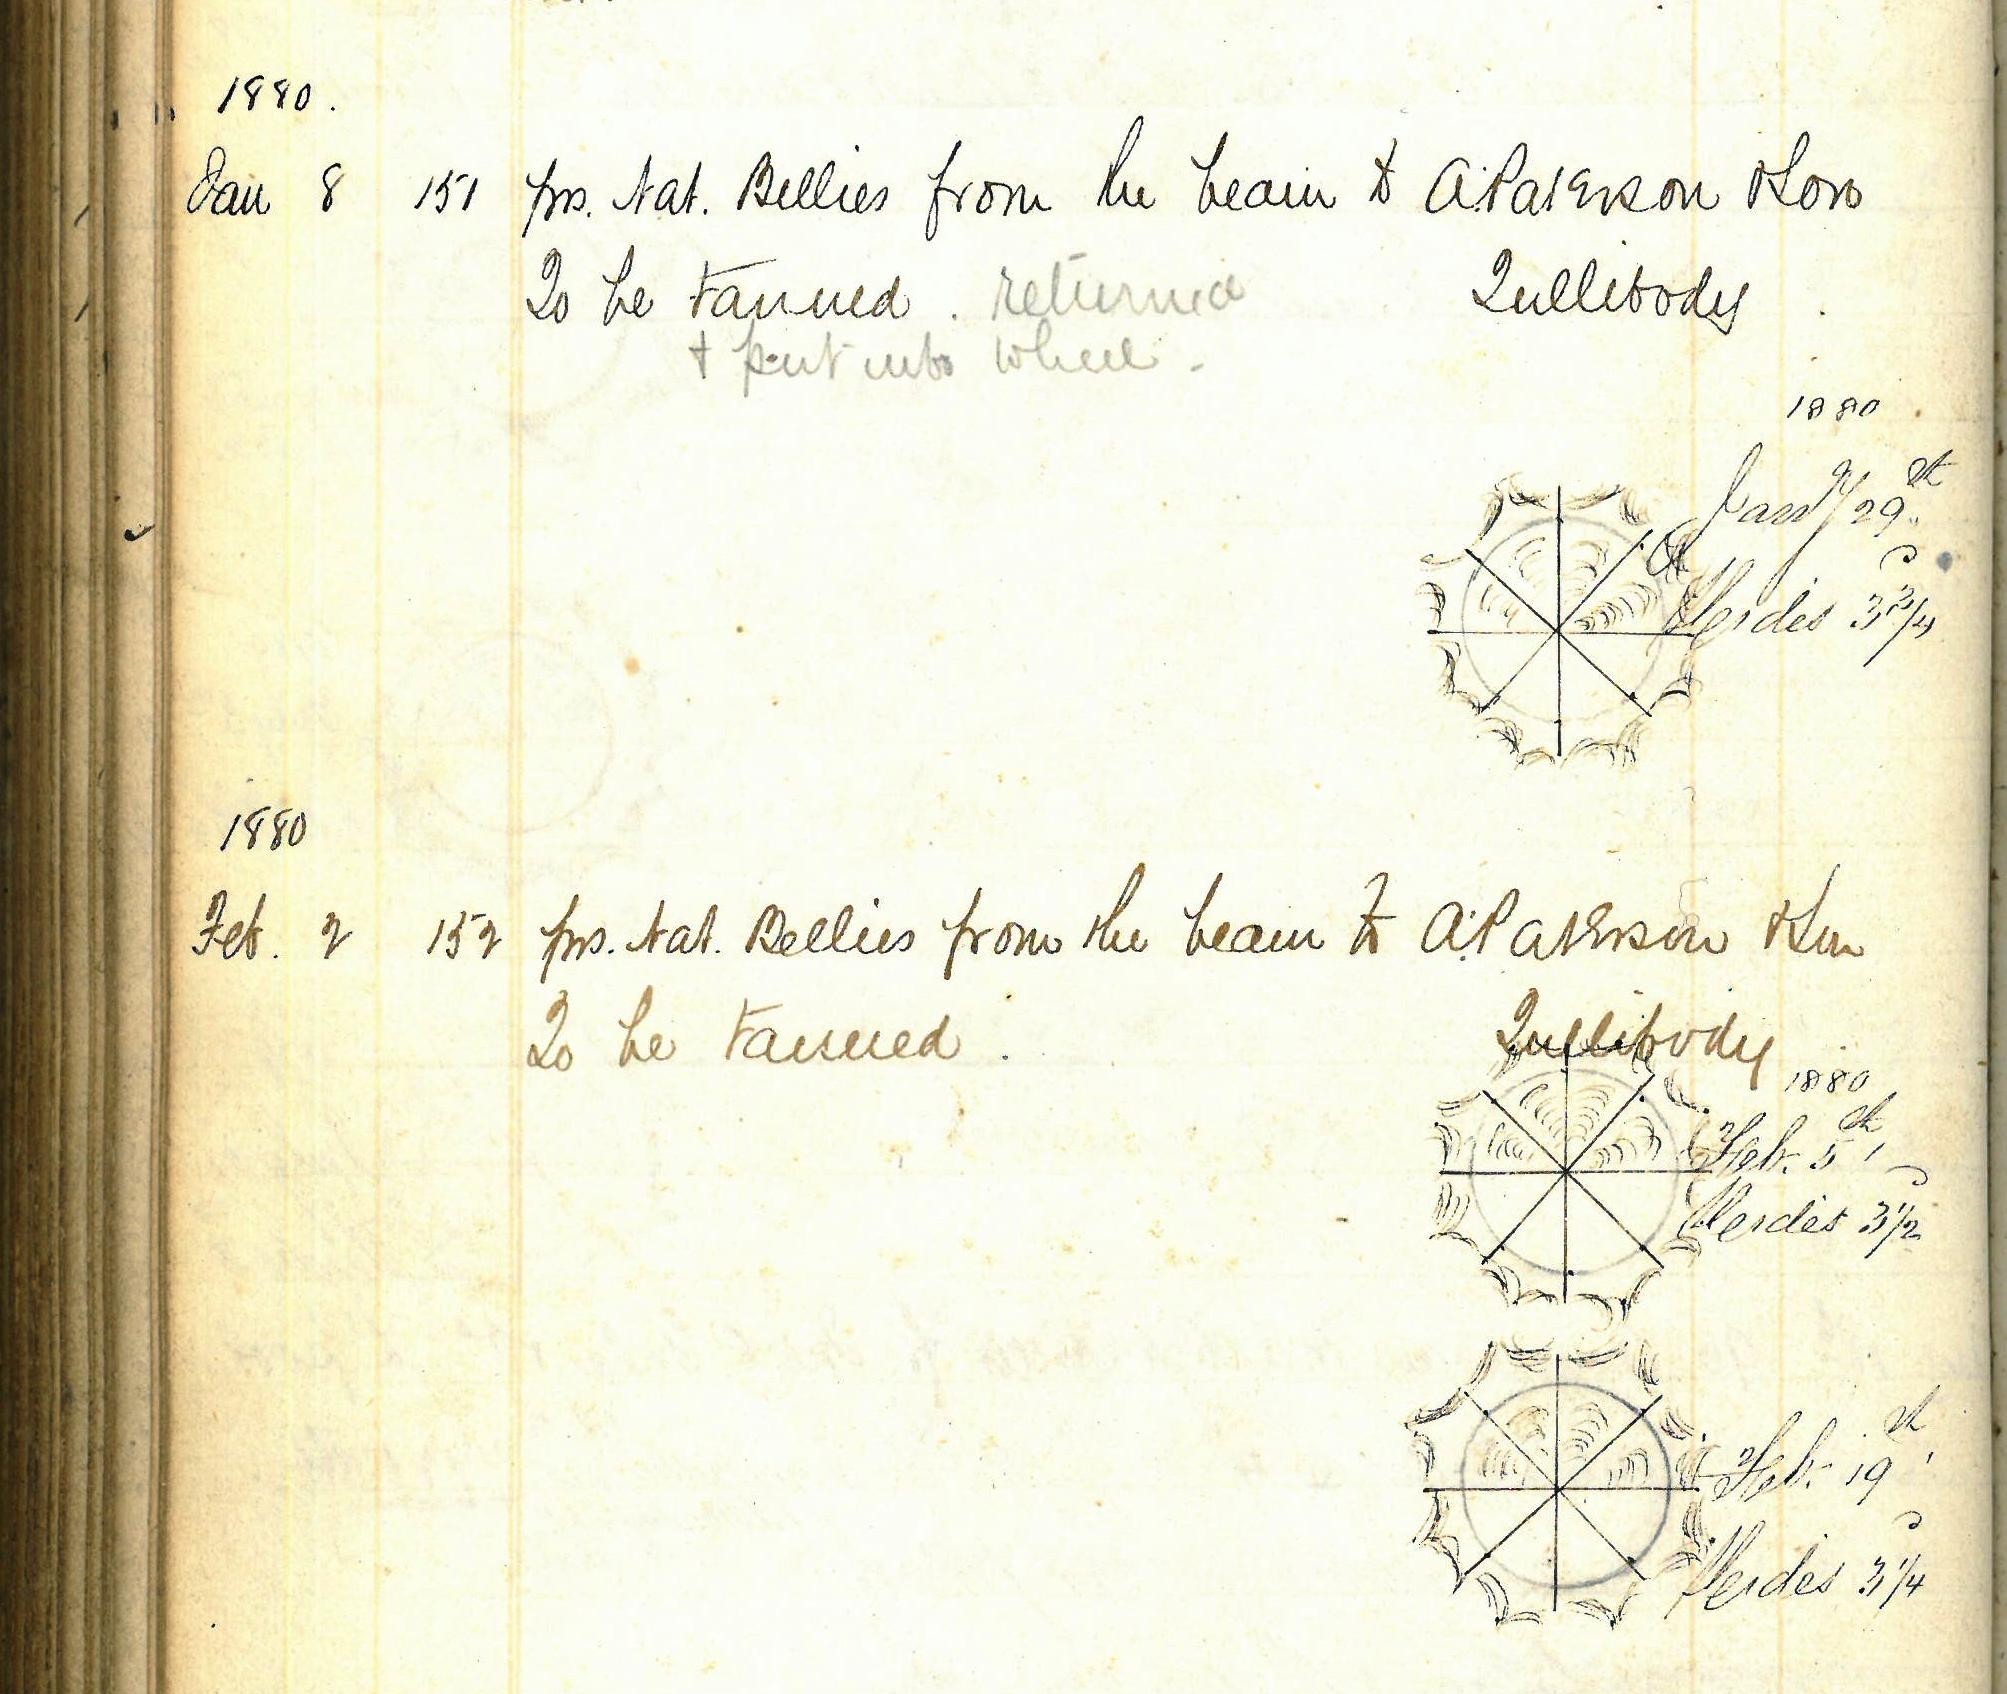 1880.
Jan 8 151 prs. Nat. Bellies from the beam to A. Paterson & Son
To be Tanned. returned Tullibody.
& put into wheel.
1880
Jany 29th
Heides 3 3/4
1880
Feb. 2 152 prs. Nat. Bellies from the beam to A. Paterson & Son
To be Tanned. Tullibody
1880
Feb. 5th
Heides 3 1/2
Feb. 19th
Heides 3 1/4